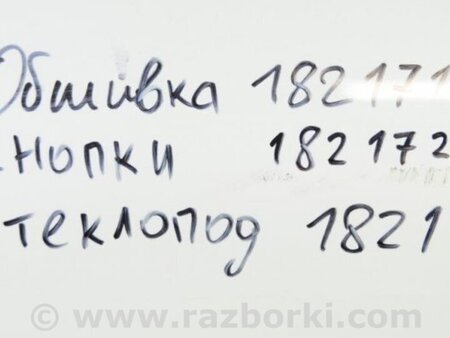 Обшивка 182171
кнопки 182172
стеклопод 1821
© www.razborki.com